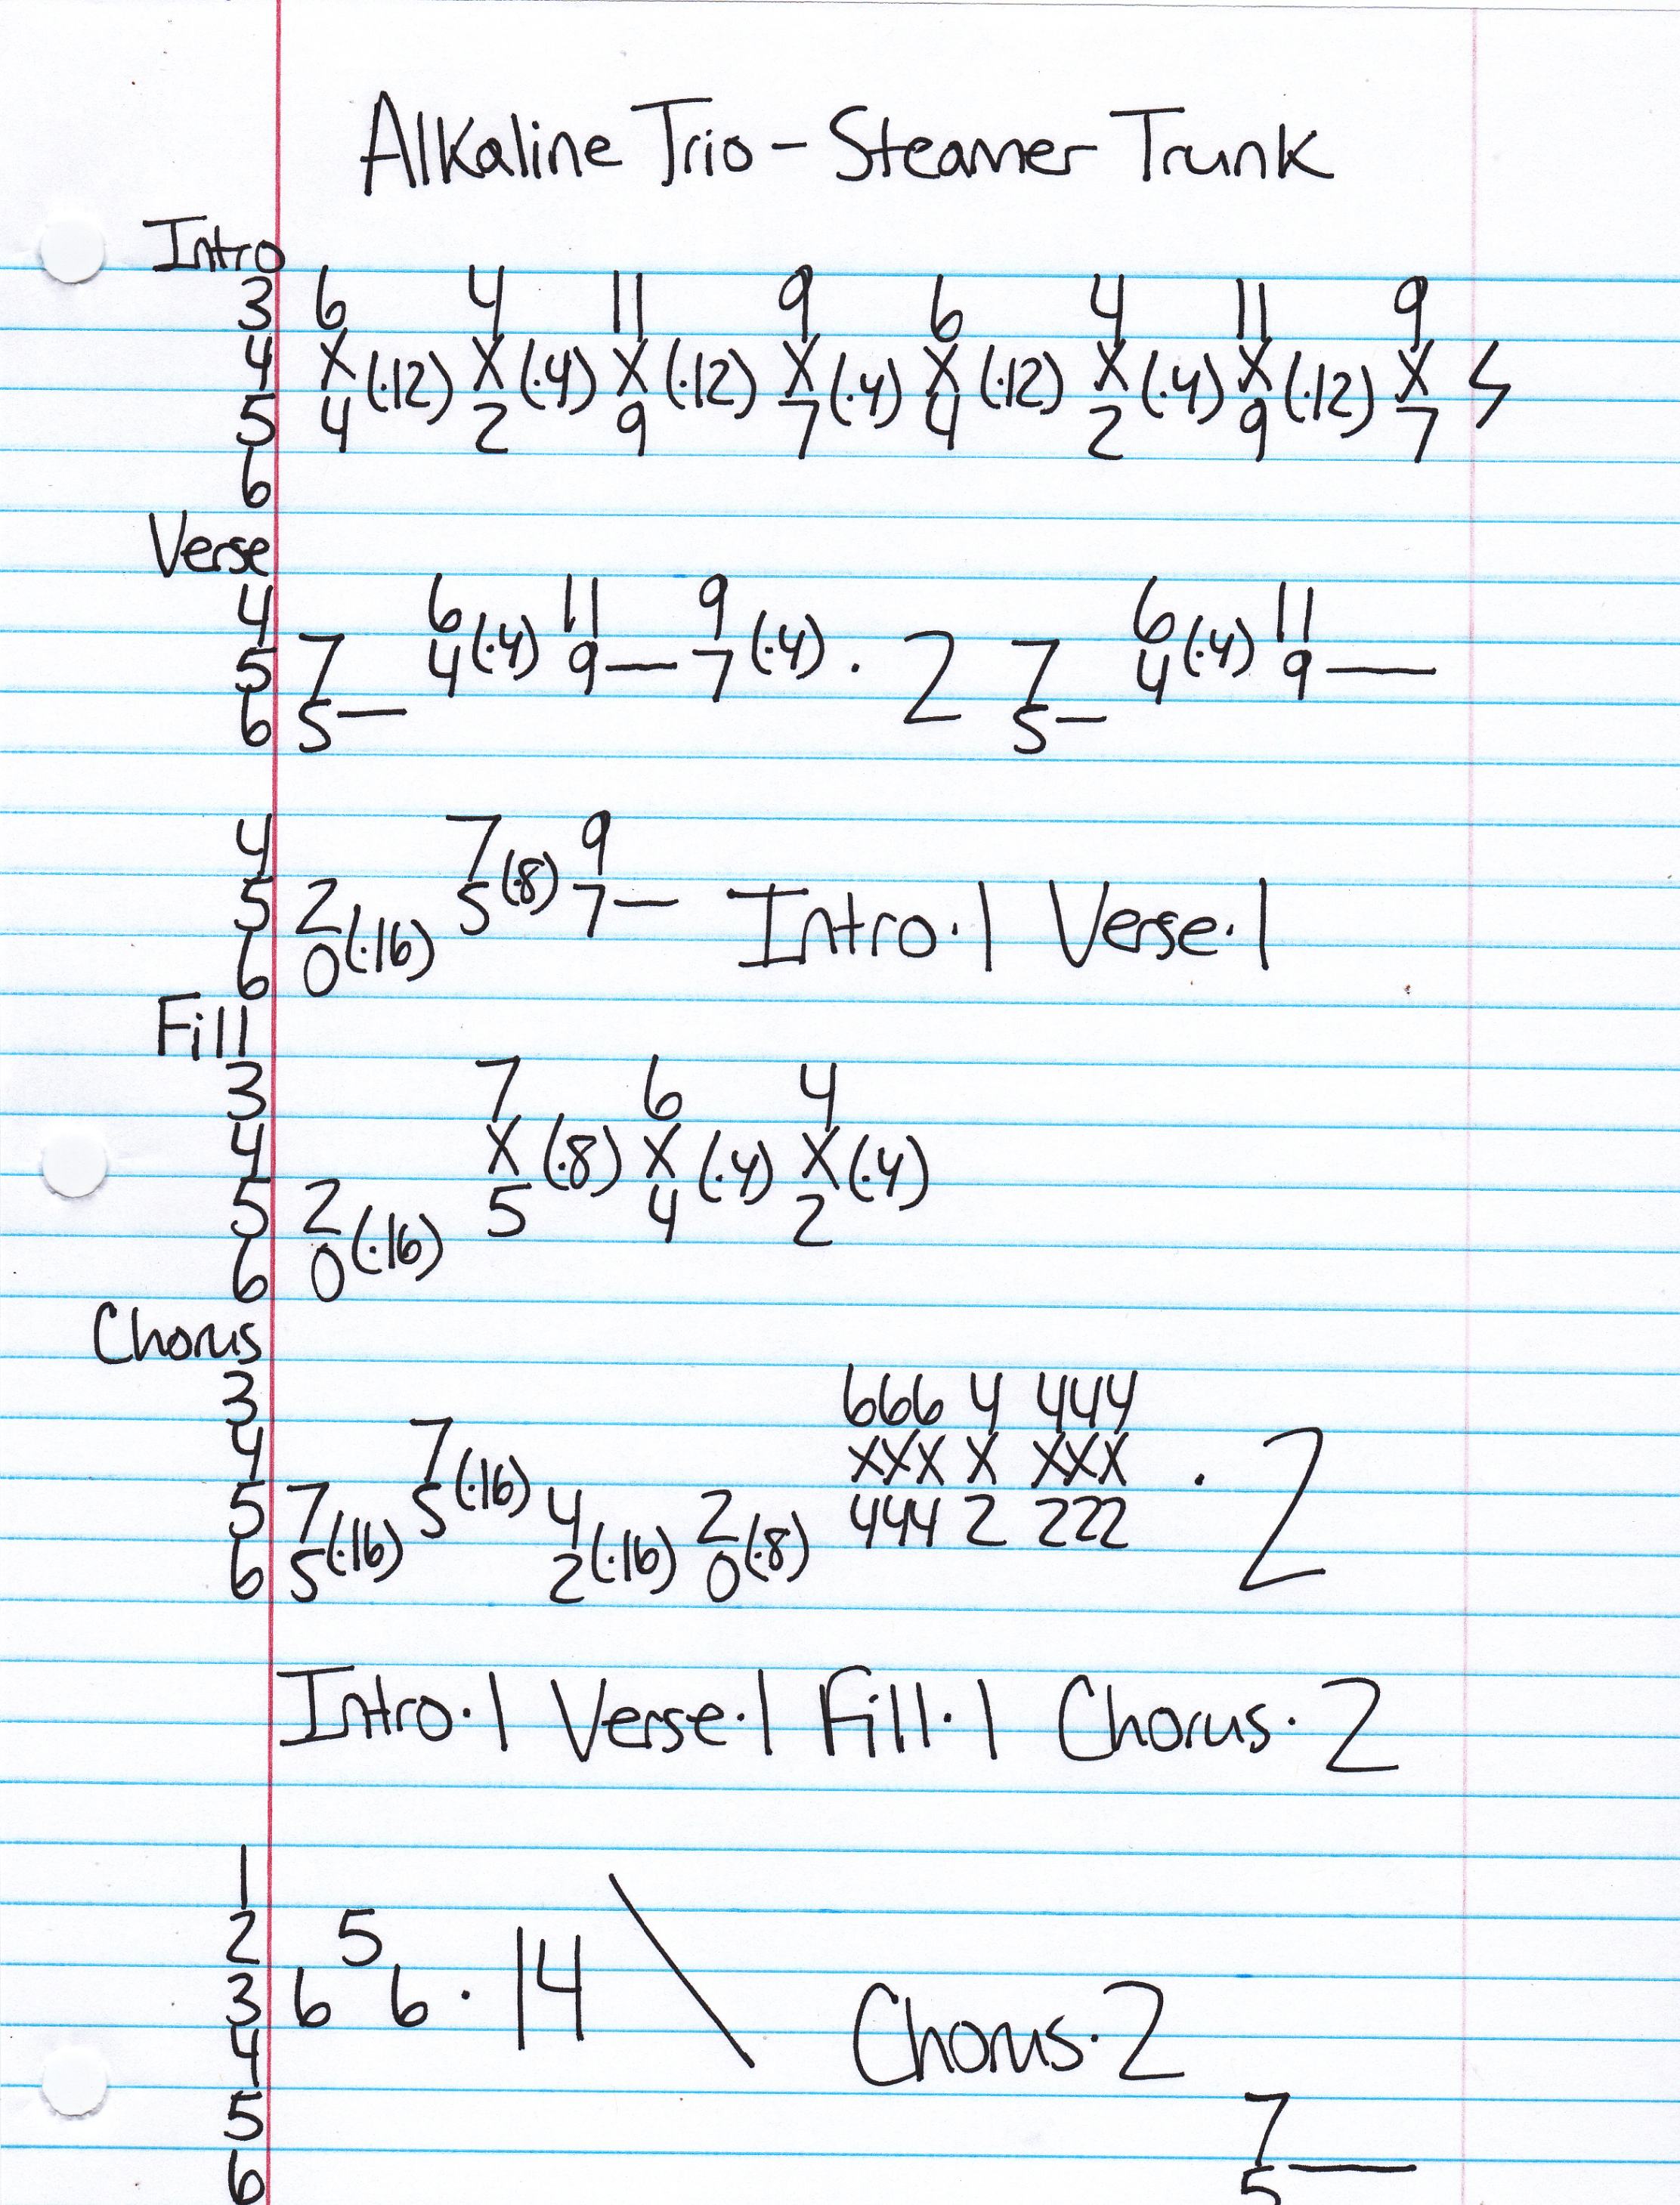 Alkaline Trio - Steamer Trunk
Intro
3 6 4 11 9 6 4 11 9
4 X (·12) X (·4) X (·12) X (·4) X (·12) X (·4) X (·12) X
5 4 2 9 7 4 2 9 7
6
Verse
4 6 11 9 6 11
5 7 4 (·4) 9 — 7 (·4) · 2 7 4 (·4) 9 —
6 5 — 5 —
4 7 9
5 2 5 (·8) 7 — Intro·1 Verse·1
6 0 (·16)
Fill
3 7 6 4
4 X (·8) X (·4) X (·4)
5 2 5 4 2
6 0 (·16)
Chorus
3 666 4 444
4 7 XXX X XXX · 2
5 7 5 (·16) 4 2 444 2 222
6 5 (·16) 2 (·16) 0 (·8)
Intro·1 Verse·1 Fill·1 Chorus·2
1
2 5
3 6 6 · 14 \ Chorus·2
4
5 7
6 5 —